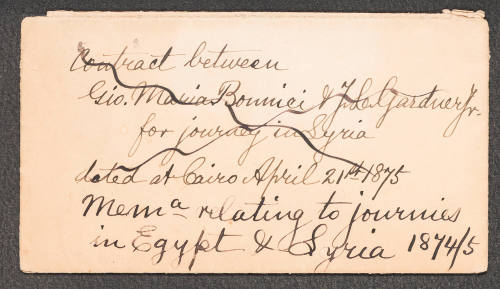 Contract between
Gio. Maria Bonnici & J. L. Gardner Jr.
for journey in Syria
dated at Cairo April 21st 1875
Mema relating to journies
in Egypt & Syria 1874/5